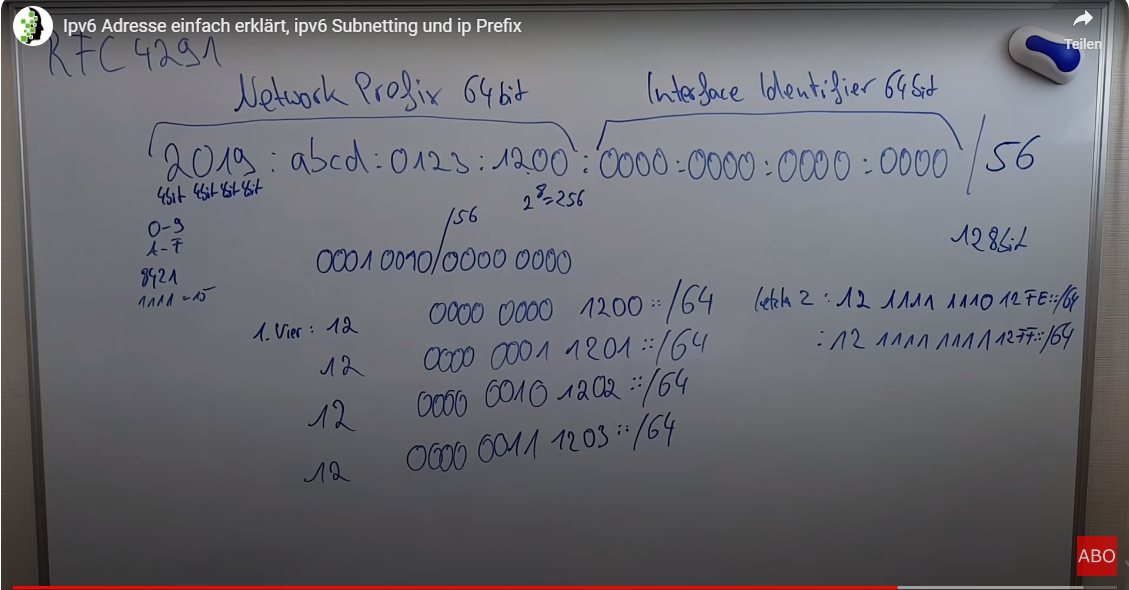 Ipv6 Adresse einfach erklärt, ipv6 Subnetting und ip Prefix
Teilen
RFC 4291
Network Prefix 64bit
Interface Identifier 64bit
2019 : abcd : 0123 : 1200 : 0000 : 0000 : 0000 : 0000 /56
4bit 4bit 4bit 4bit
2^8=256
128bit
0-9
A-F
8421
1111 = 15
/56
0001 0010/0000 0000
1. Vier : 12 0000 0000 1200 :: /64
12 0000 0001 1201 :: /64
12 0000 0010 1202 :: /64
12 0000 0011 1203 :: /64
letzte 2 : 12 1111 1110 12FE::/64
: 12 1111 1111 12FF::/64
ABO